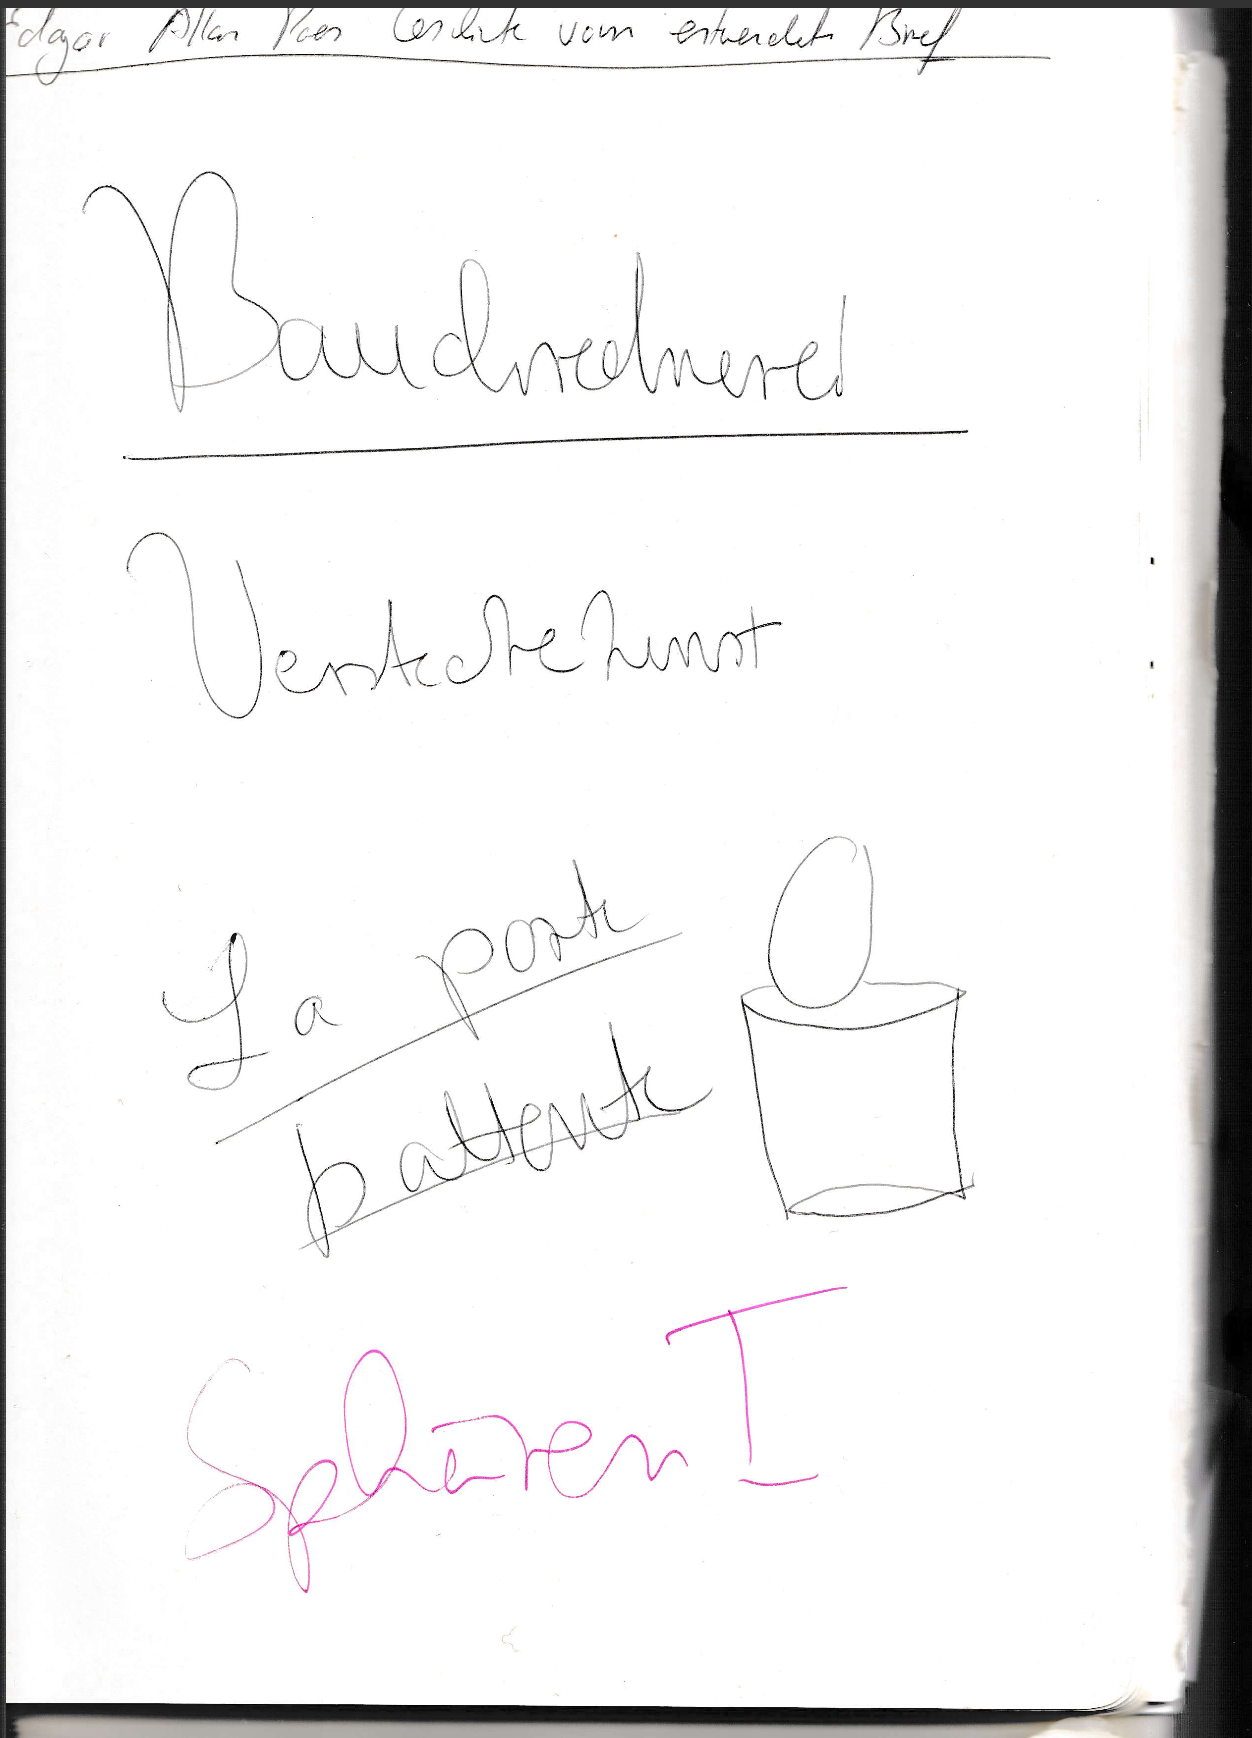 Edgar Allan Poes Geschichte vom entwendeten Brief
Bauchrednerei
Versteckkunst
La porte
battante
Sphären I